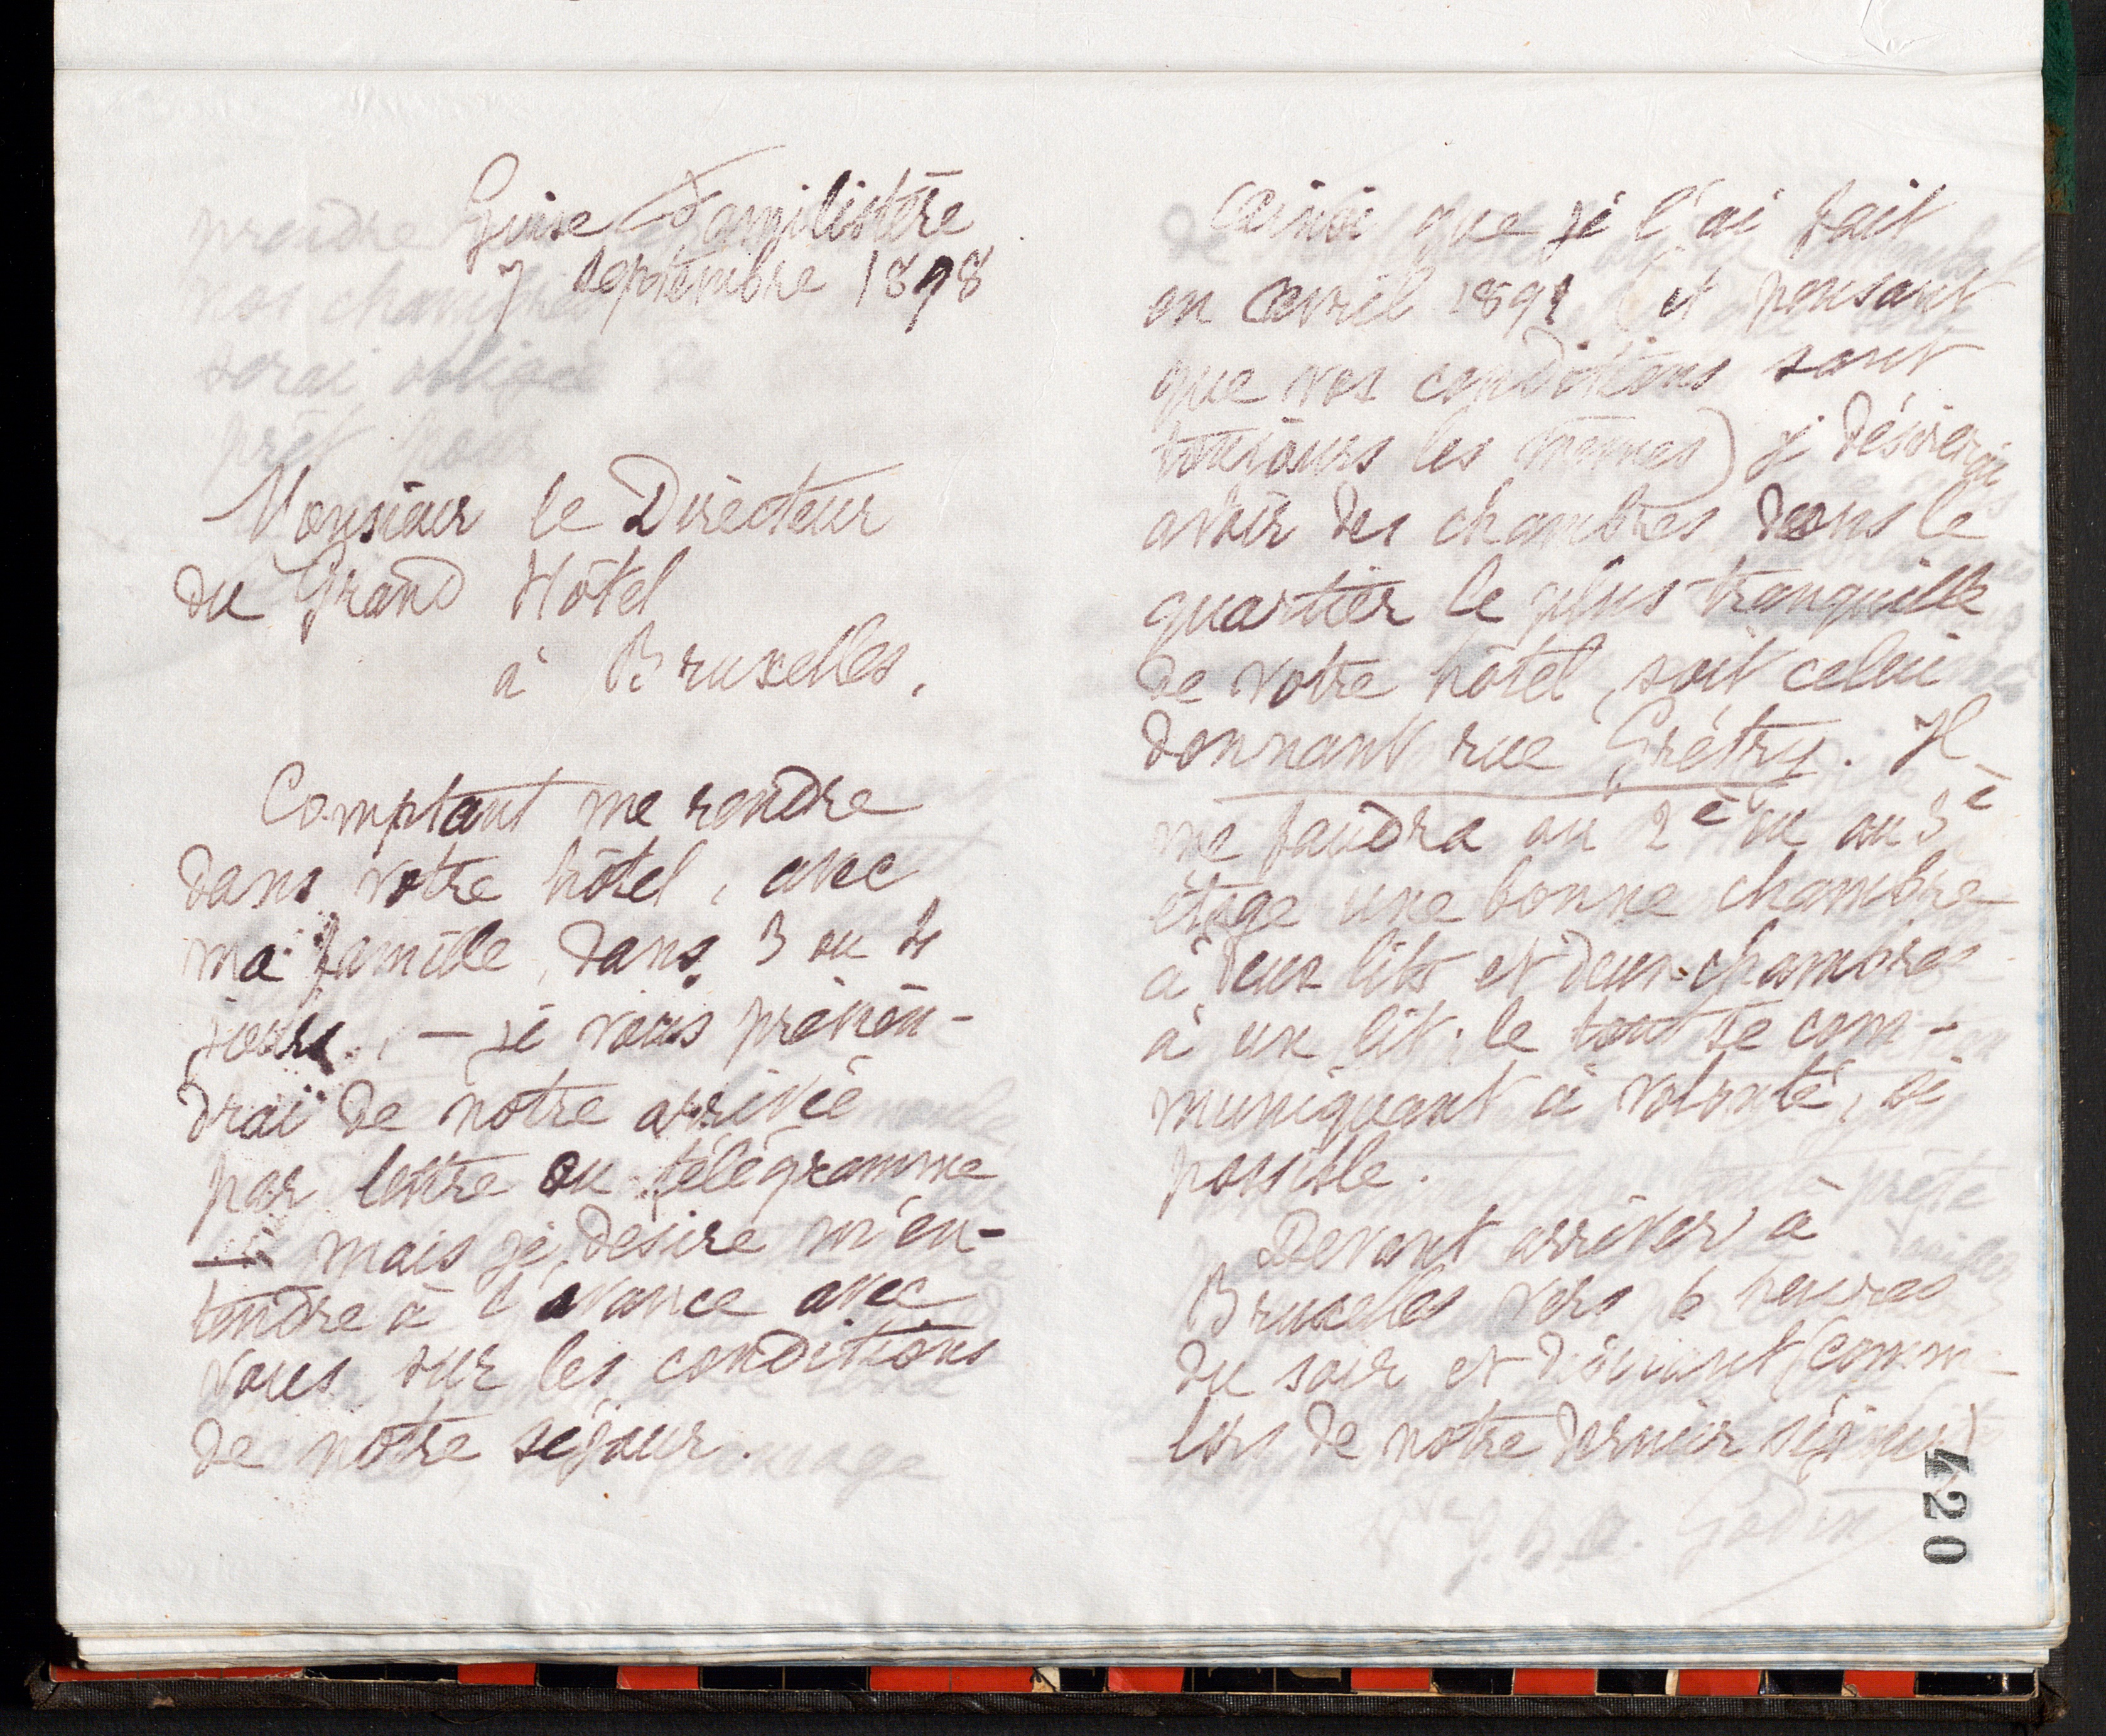 Guise Familistère
7 septembre 1898
Monsieur le Directeur
du Grand Hôtel
à Bruxelles.
Comptant me rendre
dans votre hôtel, avec
ma famille, dans 3 ou 4
jours, — je vous préven-
drai de notre arrivée
par lettre ou télégramme
— mais je désire m'en-
tendre à l'avance avec
vous sur les conditions
de notre séjour.
Ainsi que je l'ai fait
en avril 1891 (et pensant
que vos conditions sont
toujours les mêmes) je désirerais
avoir des chambres dans le
quartier le plus tranquille
de votre hôtel, soit celui
donnant rue Grétry. Il
me faudra au 2e ou au 3e
étage une bonne chambre
à deux lits et deux chambres
à un lit. le tout se com-
muniquant à volonté, si
possible.
Devant arriver à
Bruxelles vers 6 heures
du soir et désirant (comme
lors de notre dernier séjour)
420
Vve J. B. A. Godin